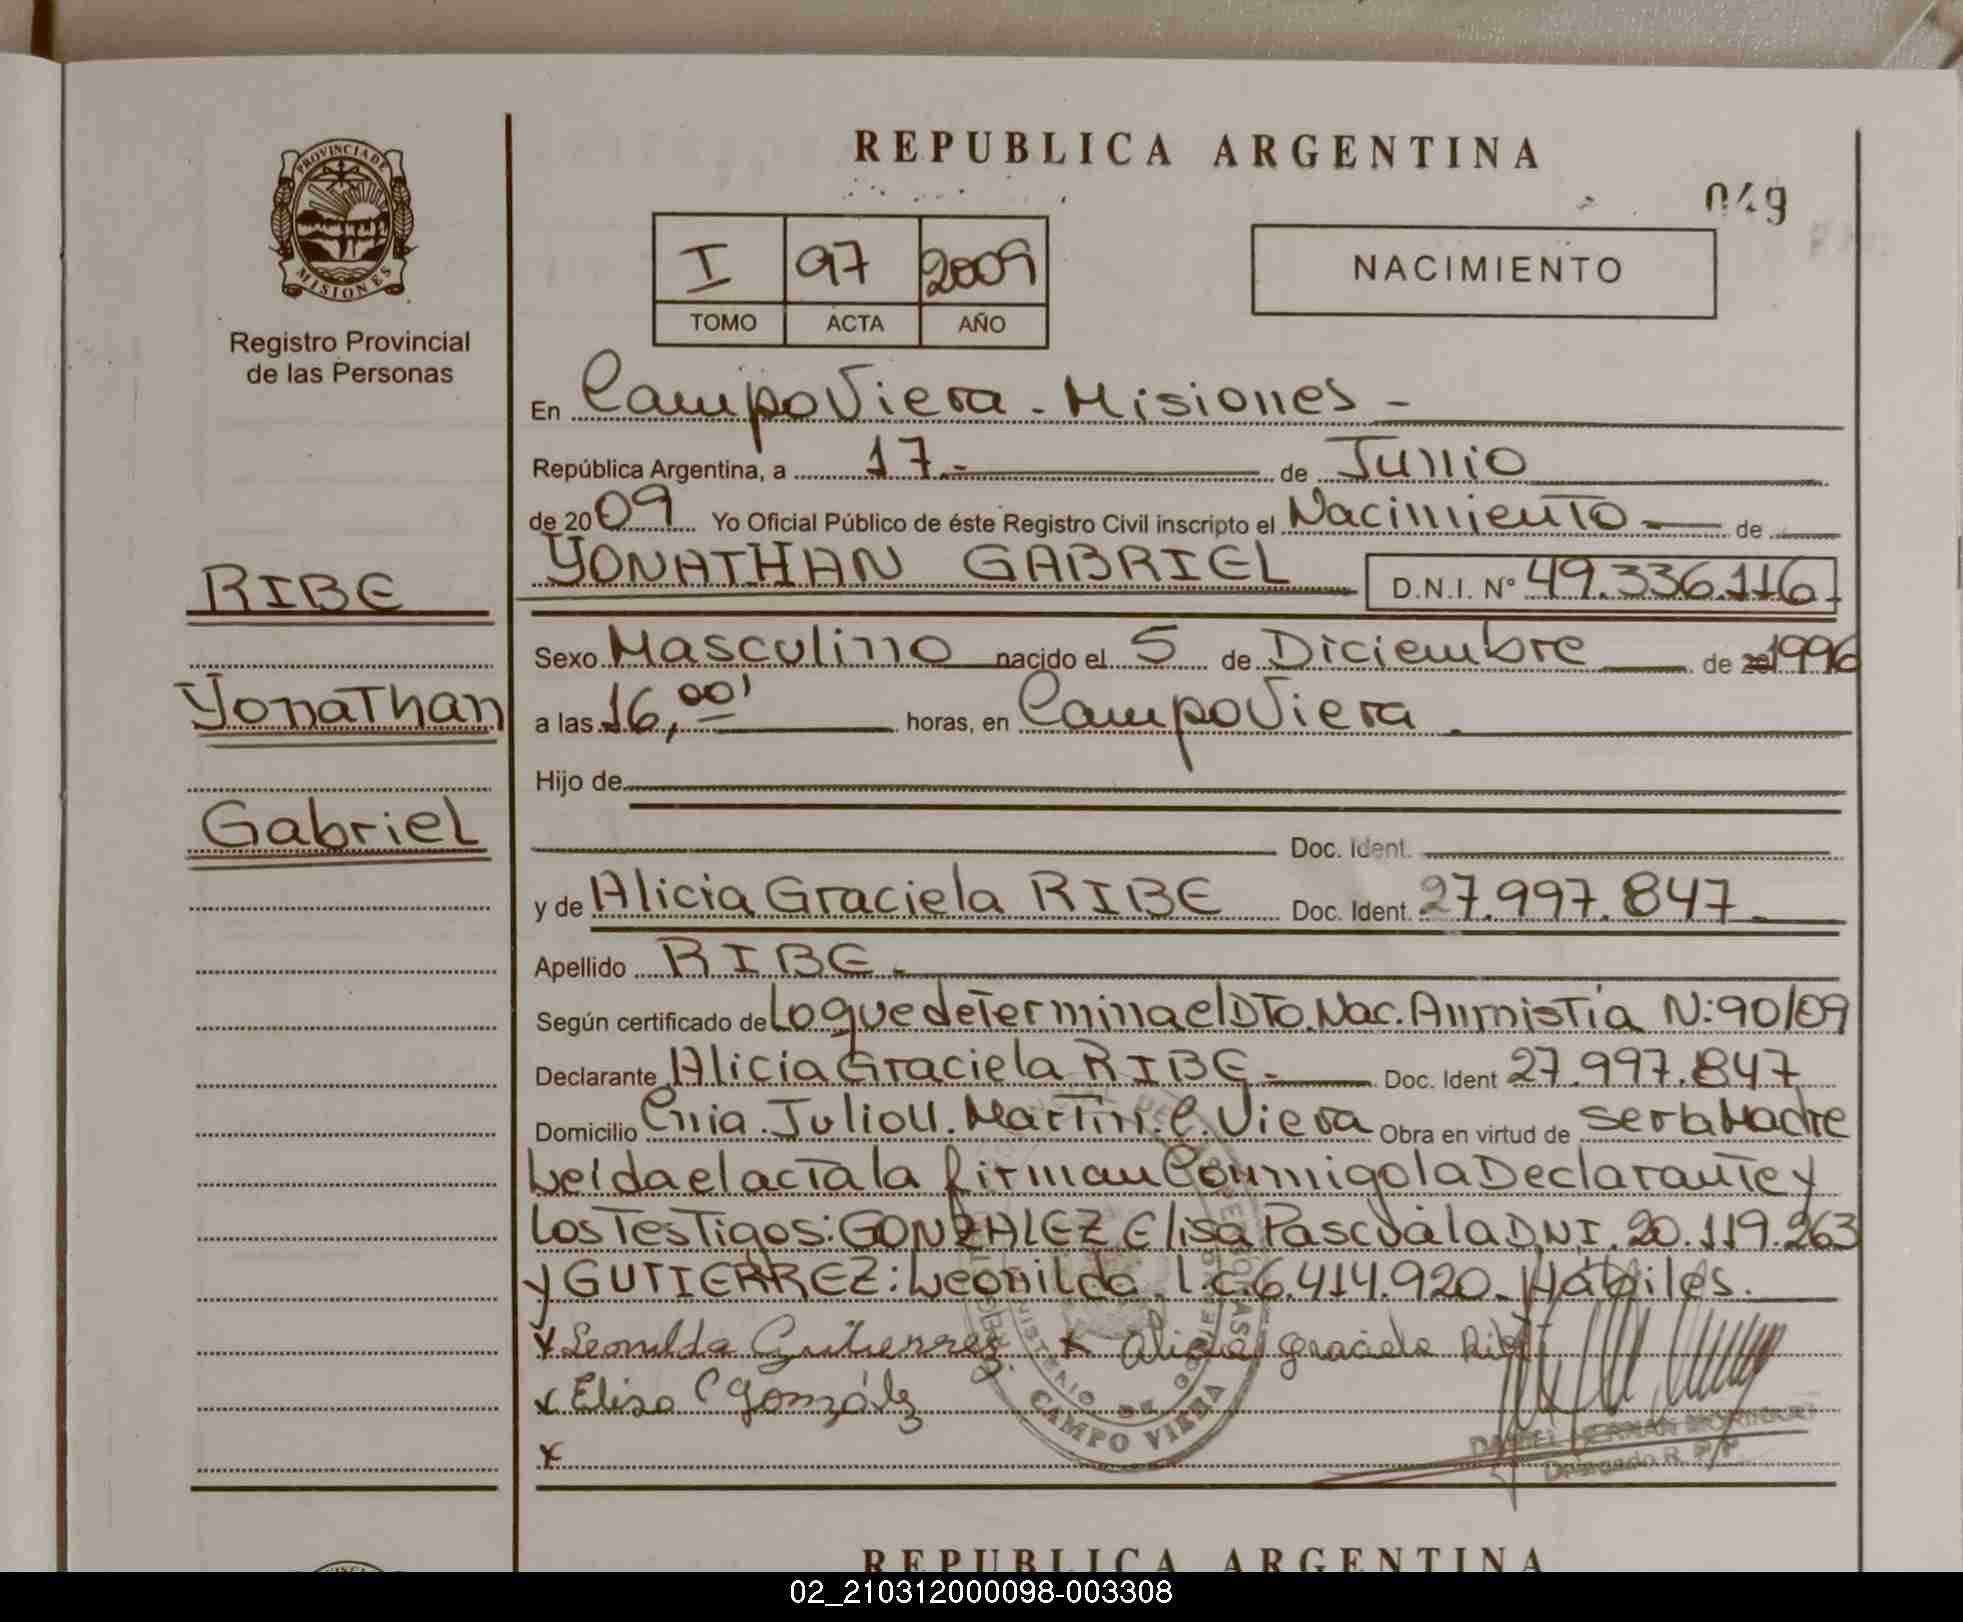 REPUBLICA ARGENTINA
049
PROVINCIA DE
MISIONES
Registro Provincial
de las Personas
I 97 2009
TOMO ACTA AÑO
NACIMIENTO
En Campo Viera - Misiones -
República Argentina, a 17.- de Junio
de 2009 Yo Oficial Público de éste Registro Civil inscripto el Nacimiento de
RIBE
YONATHAN GABRIEL D.N.I. Nº 49.336.116.
Sexo Masculino nacido el 5 de Diciembre de 1996
Yonathan
a las 16,00' horas, en Campo Viera
Hijo de
Gabriel
Doc. Ident.
y de Alicia Graciela RIBE Doc. Ident. 27.997.847
Apellido RIBE.
Según certificado de Lo que determina el DTo. Nac. Anmistía N:90/09
Declarante Alicia Graciela RIBE Doc. Ident 27.997.847
Domicilio Cnia. Julio U. Martin. C. Viera Obra en virtud de ser la Madre
Leida el acta la firman Conmigo la Declarante y
los Testigos: GONZALEZ Elisa Pascuala DNI. 20.119.263
y GUTIERREZ: Leonilda. l.c. 6.414.920. Hábiles.
x Leonilda Gutierrez x Alicia graciela Ribe
x Elisa González
x
CAMPO VIERA
Delegado R. P. P.
REPUBLICA ARGENTINA
02_210312000098-003308